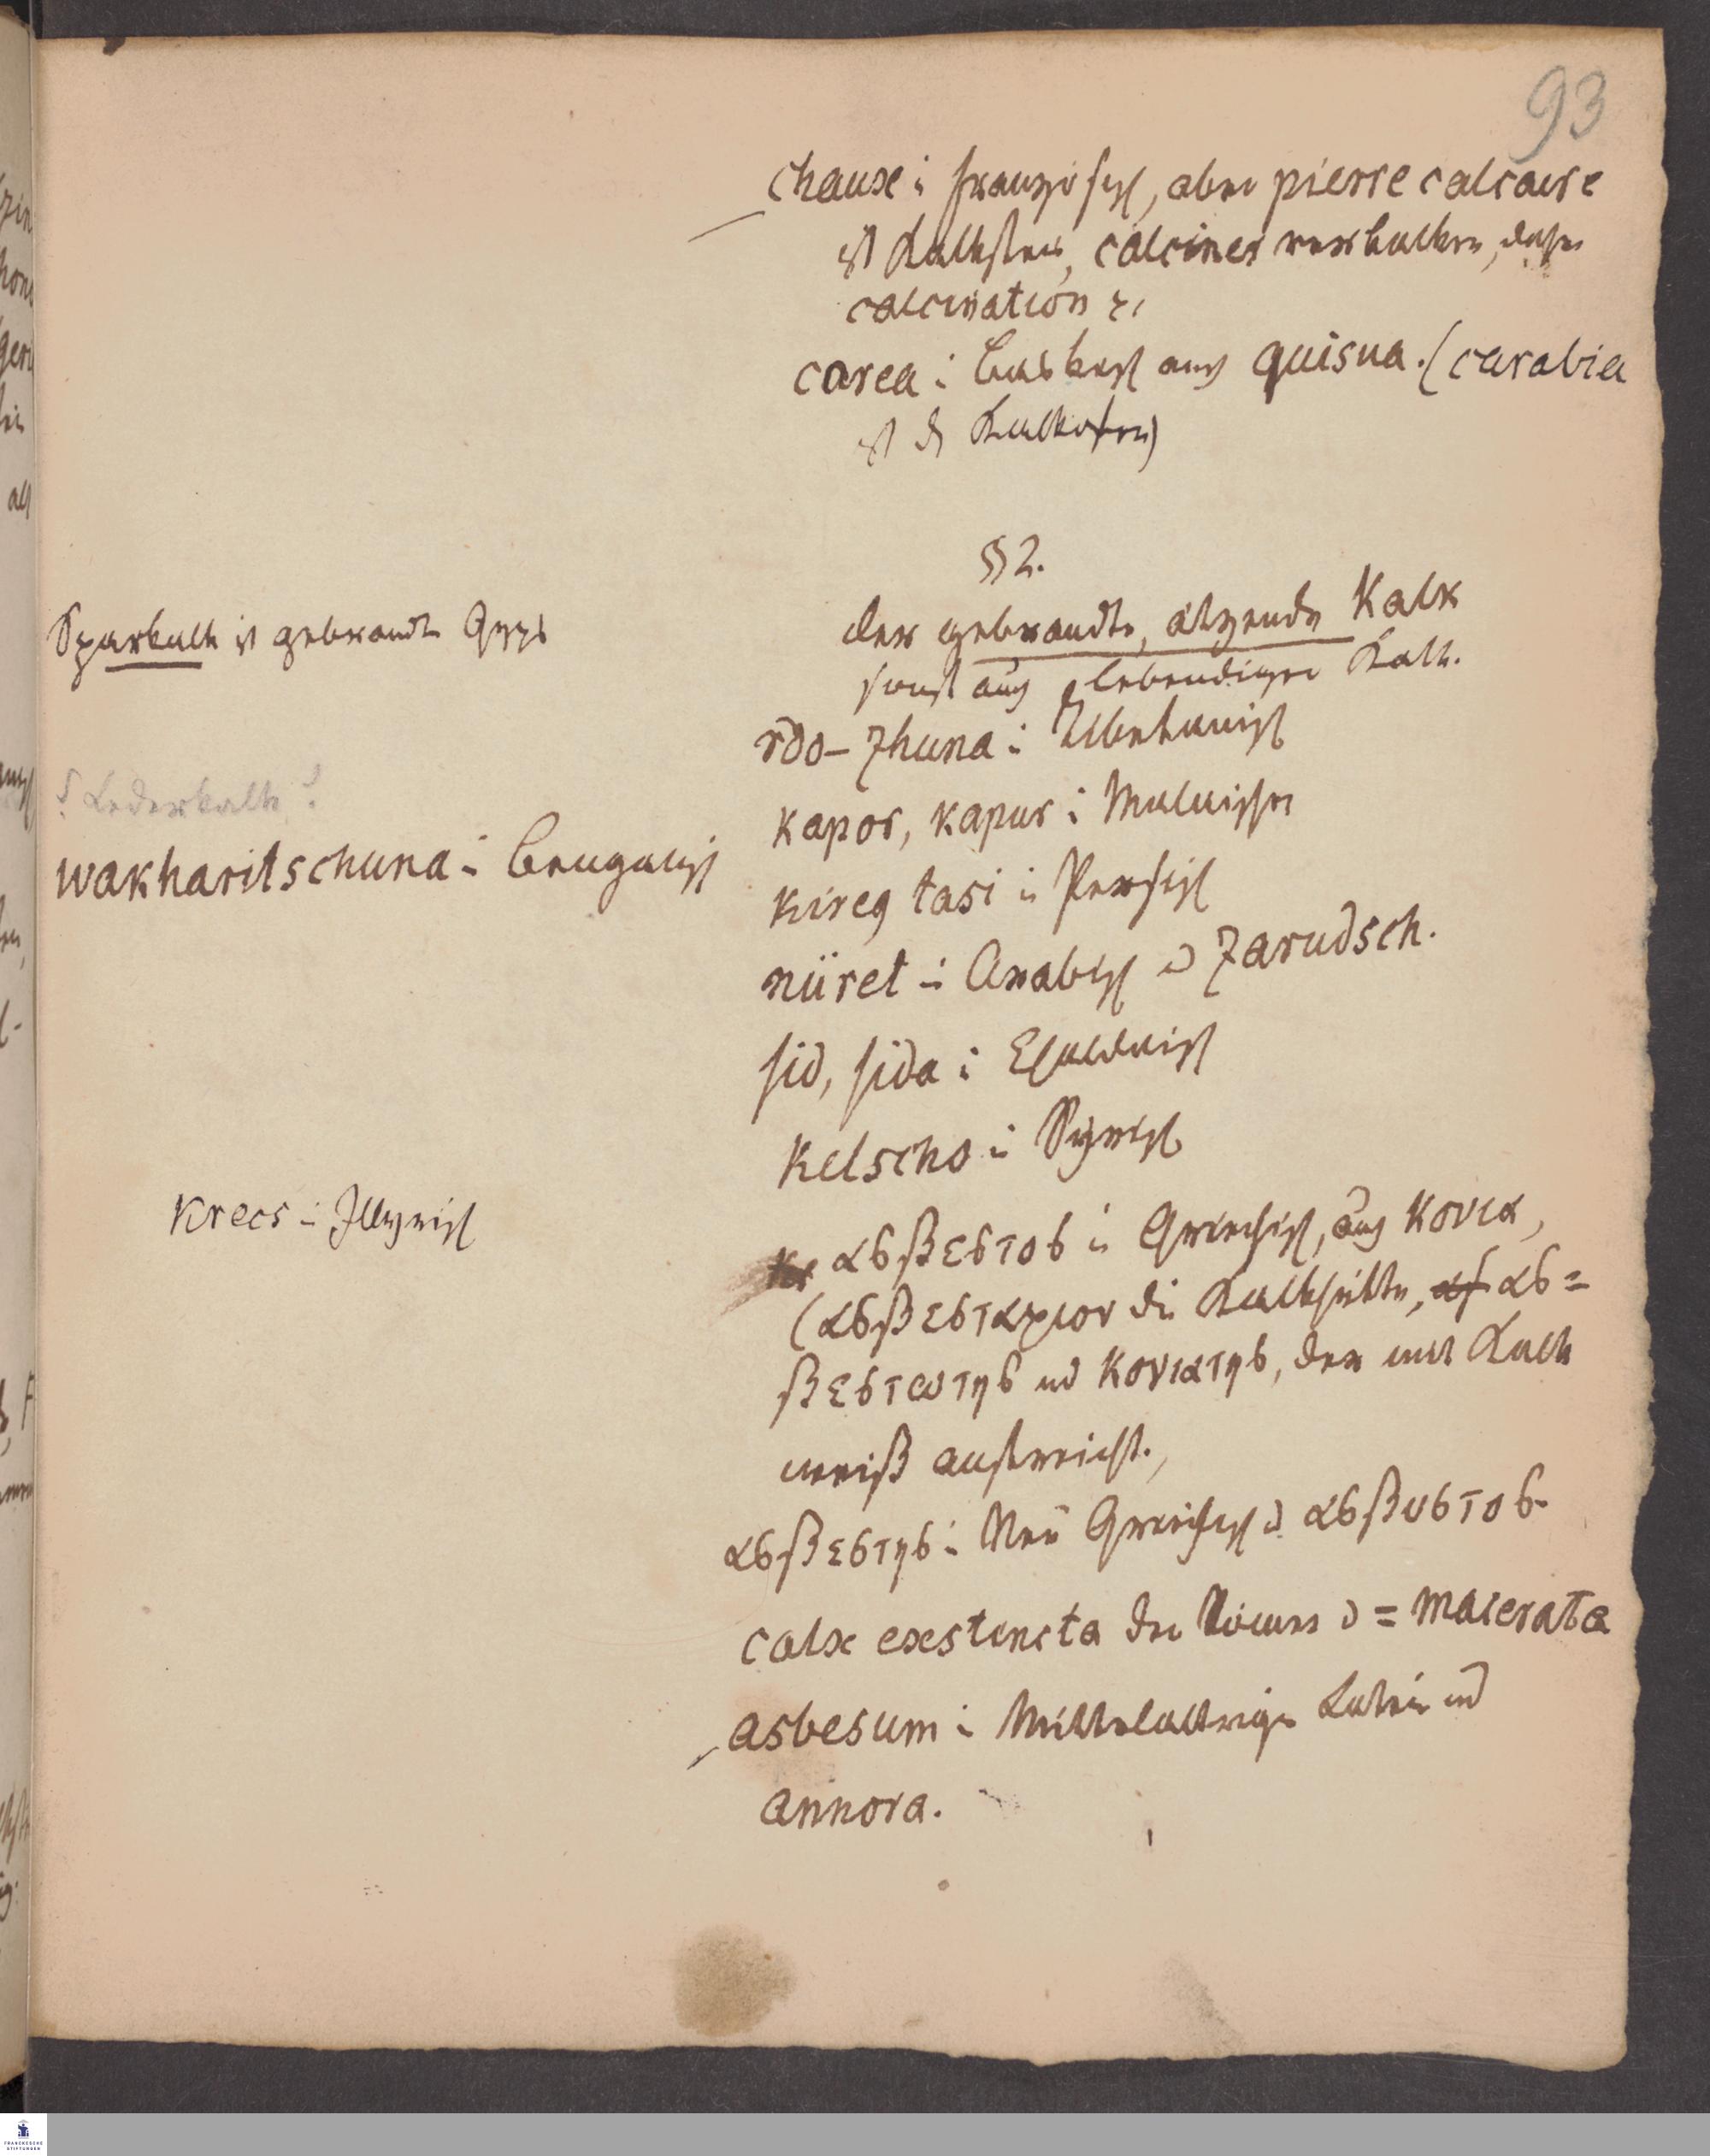 93
chaux i französisch, aber pierre calcaire
ist Kalkstein, calciner verkalken, daher
calcination ꝛc
carea i baskisch auch quisua. (carabia
ist der Kalkofen)
§ 2.
Der gebrandte, ätzende Kalk
sonst auch lebendiger Kalk.
Sparkalk ist gebrandter Gyps
rdo-zhuna i Tibetanisch
? Lederkalk ?
kapor, kapur i Malaischen
wakharitschuna i bengalisch
kireg tasi i Persisch
nüret i Arabisch u zarudsch.
sid, sida i Chaldaisch
Kelscho i Syrisch
Krecs i Illyrisch
ασβεστος i Griechisch, auch κονια,
(ασβεσταριον die Kalkhütte, ασ=
βεστωτης und κονιατης, der mit Kalk
weiß anstreicht.,
ασβεστης i Neu Griechisch u ασβυστος
calx exstincta der Römer u = macerata
asbesum i Mittelaltrigen Latein und
annora.
FRANCKESCHE
STIFTUNGEN